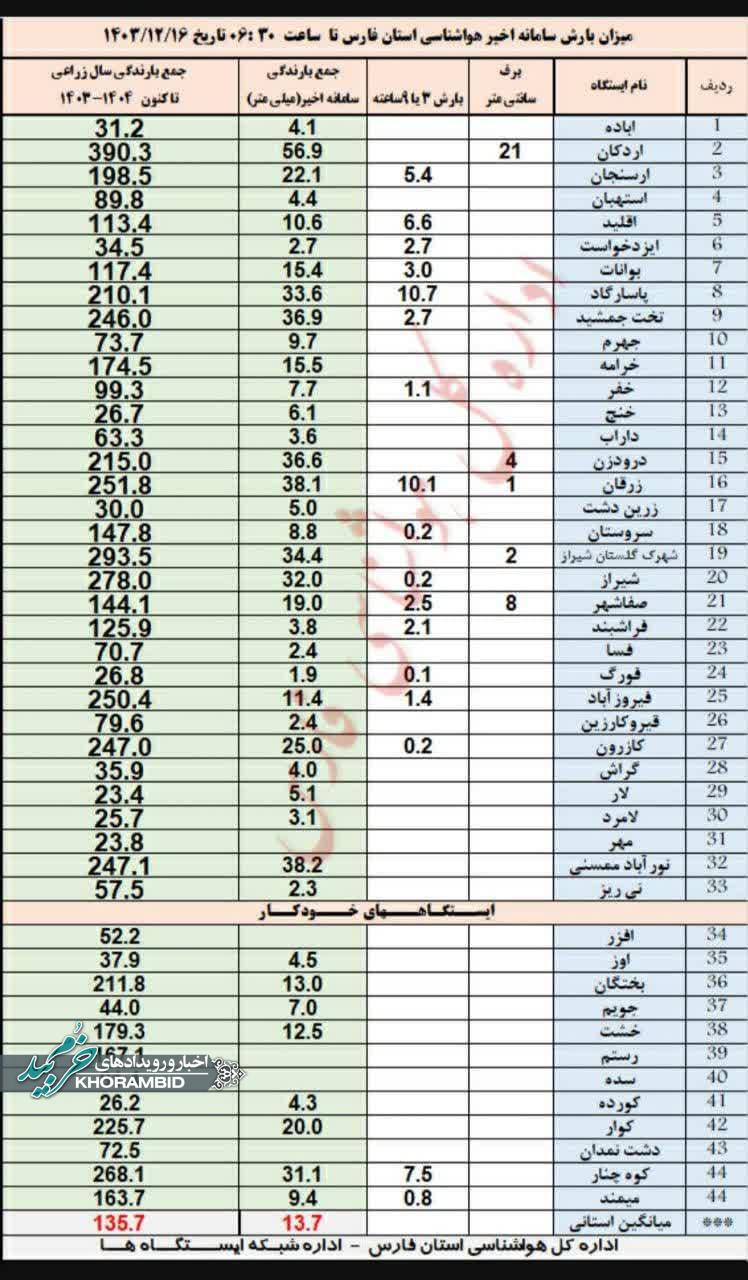 میزان بارش سامانه اخیر هواشناسی استان فارس تا ساعت ۰۶:۳۰ تاریخ ۱۴۰۳/۱۲/۱۶
ردیف نام ایستگاه برف سانتی متر بارش ۳ یا ۹ ساعته جمع بارندگی سامانه اخیر(میلی متر) جمع بارندگی سال زراعی تاکنون ۱۴۰۴-۱۴۰۳
1 اباده 4.1 31.2
2 اردکان 21 56.9 390.3
3 ارسنجان 5.4 22.1 198.5
4 استهبان 4.4 89.8
5 اقلید 6.6 10.6 113.4
6 ایزدخواست 2.7 2.7 34.5
7 بوانات 3.0 15.4 117.4
8 پاسارگاد 10.7 33.6 210.1
9 تخت جمشید 2.7 36.9 246.0
10 جهرم 9.7 73.7
11 خرامه 15.5 174.5
12 خفر 1.1 7.7 99.3
13 خنج 6.1 26.7
14 داراب 3.6 63.3
15 درودزن 4 36.6 215.0
16 زرقان 1 10.1 38.1 251.8
17 زرین دشت 5.0 30.0
18 سروستان 0.2 8.8 147.8
19 شهرک گلستان شیراز 2 34.4 293.5
20 شیراز 0.2 32.0 278.0
21 صفاشهر 8 2.5 19.0 144.1
22 فراشبند 2.1 3.8 125.9
23 فسا 2.4 70.7
24 فورگ 0.1 1.9 26.8
25 فیروزآباد 1.4 11.4 250.4
26 قیروکارزین 2.4 79.6
27 کازرون 0.2 25.0 247.0
28 گراش 4.0 35.9
29 لار 5.1 23.4
30 لامرد 3.1 25.7
31 مهر 23.8
32 نورآباد ممسنی 38.2 247.1
33 نی ریز 2.3 57.5
ایستگاههای خودکار
34 افزر 52.2
35 اوز 4.5 37.9
36 بختگان 13.0 211.8
37 جویم 7.0 44.0
38 خشت 12.5 179.3
39 رستم
40 سده
41 کورده 4.3 26.2
42 کوار 20.0 225.7
43 دشت نمدان 72.5
44 کوه چنار 7.5 31.1 268.1
44 میمند 0.8 9.4 163.7
*** میانگین استانی 13.7 135.7
اداره کل هواشناسی استان فارس - اداره شبکه ایستگاه ها
اداره کل هواشناسی فارس
اخبار و رویدادهای
خرم بید
KHORAMBID